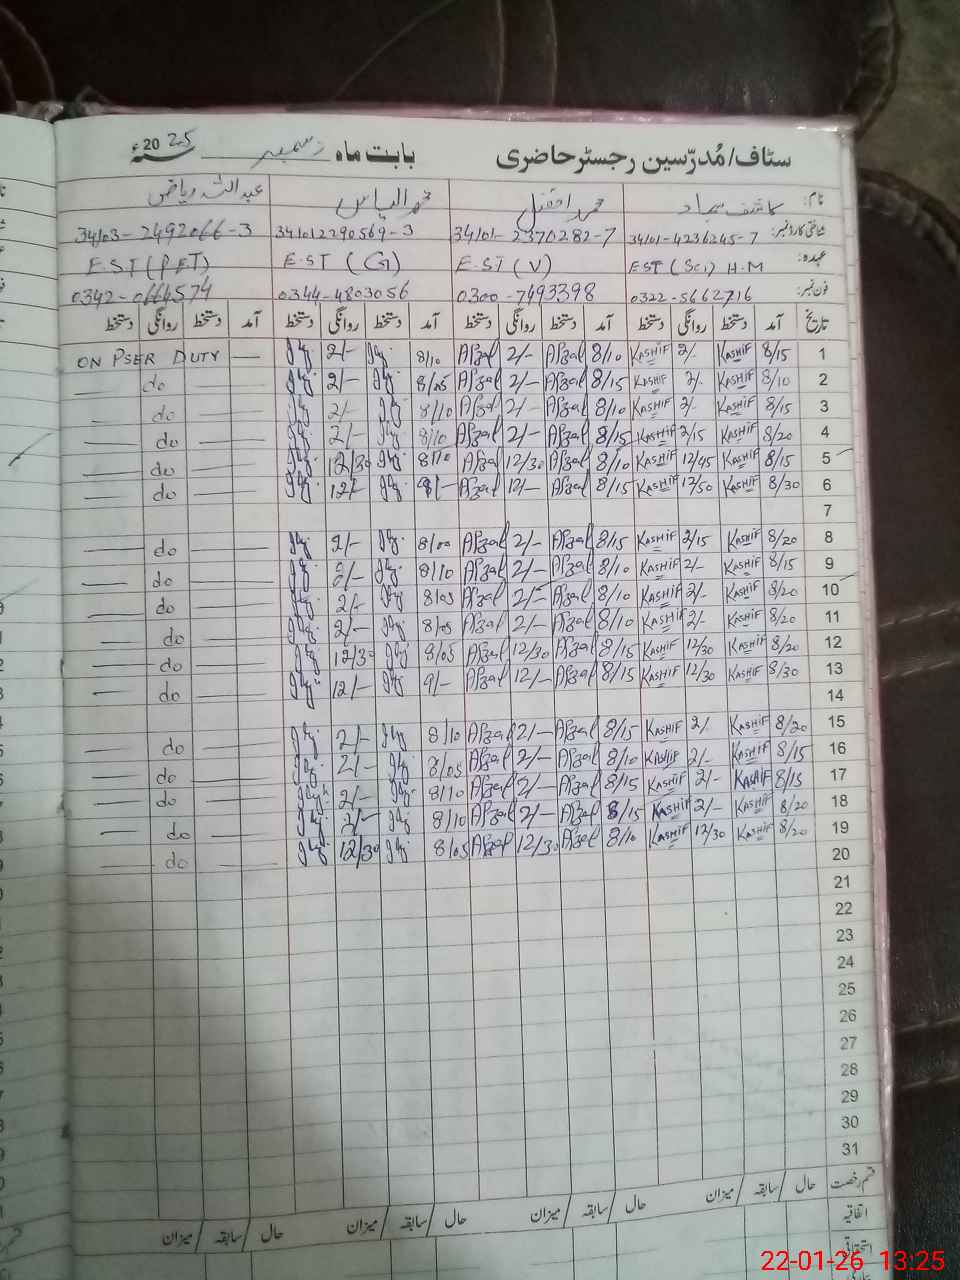 سٹاف/مُدرّسین رجسٹر حاضری بابت ماہ دسمبر سنہ 2025ء
نام: کاشف سجاد محمد افضل محمد الیاس عبداللہ ریاض
شناختی کارڈ نمبر: 34101-4236245-7 34101-2370282-7 341012290569-3 34103-2492066-3
عہدہ: EST (Sci) H.M E.ST (V) E.ST (G) E.ST (PET)
فون نمبر: 0322-5662716 0300-7493398 0344-4803056 0342-0664574
تاریخ آمد دستخط روانگی دستخط آمد دستخط روانگی دستخط آمد دستخط روانگی دستخط آمد دستخط روانگی دستخط
1 8/15 KASHIF 2/- KASHIF 8/10 Afzal 2/- Afzal 8/10 2/- ON PSER DUTY
2 8/10 KASHIF 2/- KASHIF 8/15 Afzal 2/- Afzal 8/05 2/- do
3 8/15 KASHIF 2/- KASHIF 8/10 Afzal 2/- Afzal 8/10 2/- do
4 8/20 KASHIF 2/15 KASHIF 8/15 Afzal 2/- Afzal 8/10 2/- do
5 8/15 KASHIF 12/45 KASHIF 8/10 Afzal 12/30 Afzal 8/10 12/30 do
6 8/30 KASHIF 12/50 KASHIF 8/15 Afzal 12/- Afzal 12/- do
7
8 8/20 KASHIF 2/15 KASHIF 8/15 Afzal 2/- Afzal 8/00 2/- do
9 8/15 KASHIF 2/- KASHIF 8/10 Afzal 2/- Afzal 8/10 2/- do
10 8/20 KASHIF 2/- KASHIF 8/10 Afzal 2/- Afzal 8/05 2/- do
11 8/20 KASHIF 2/- KASHIF 8/10 Afzal 2/- Afzal 8/05 2/- do
12 8/20 KASHIF 12/30 KASHIF 8/15 Afzal 12/30 Afzal 8/05 12/30 do
13 8/30 KASHIF 12/30 KASHIF 8/15 Afzal 12/- Afzal 9/- 12/- do
14
15 8/20 KASHIF 2/- KASHIF 8/15 Afzal 2/- Afzal 8/10 2/- do
16 8/15 KASHIF 2/- KASHIF 8/10 Afzal 2/- Afzal 8/05 2/- do
17 8/15 KASHIF 2/- KASHIF 8/15 Afzal 2/- Afzal 8/10 2/- do
18 8/20 KASHIF 2/- KASHIF 8/15 Afzal 2/- Afzal 8/10 2/- do
19 8/20 KASHIF 12/30 KASHIF 8/10 Afzal 12/30 Afzal 8/05 12/30 do
20
21
22
23
24
25
26
27
28
29
30
31
قسم رخصت حال سابقہ میزان حال سابقہ میزان حال سابقہ میزان حال سابقہ میزان
اتفاقیہ
استحقاقی
22-01-26 13:25